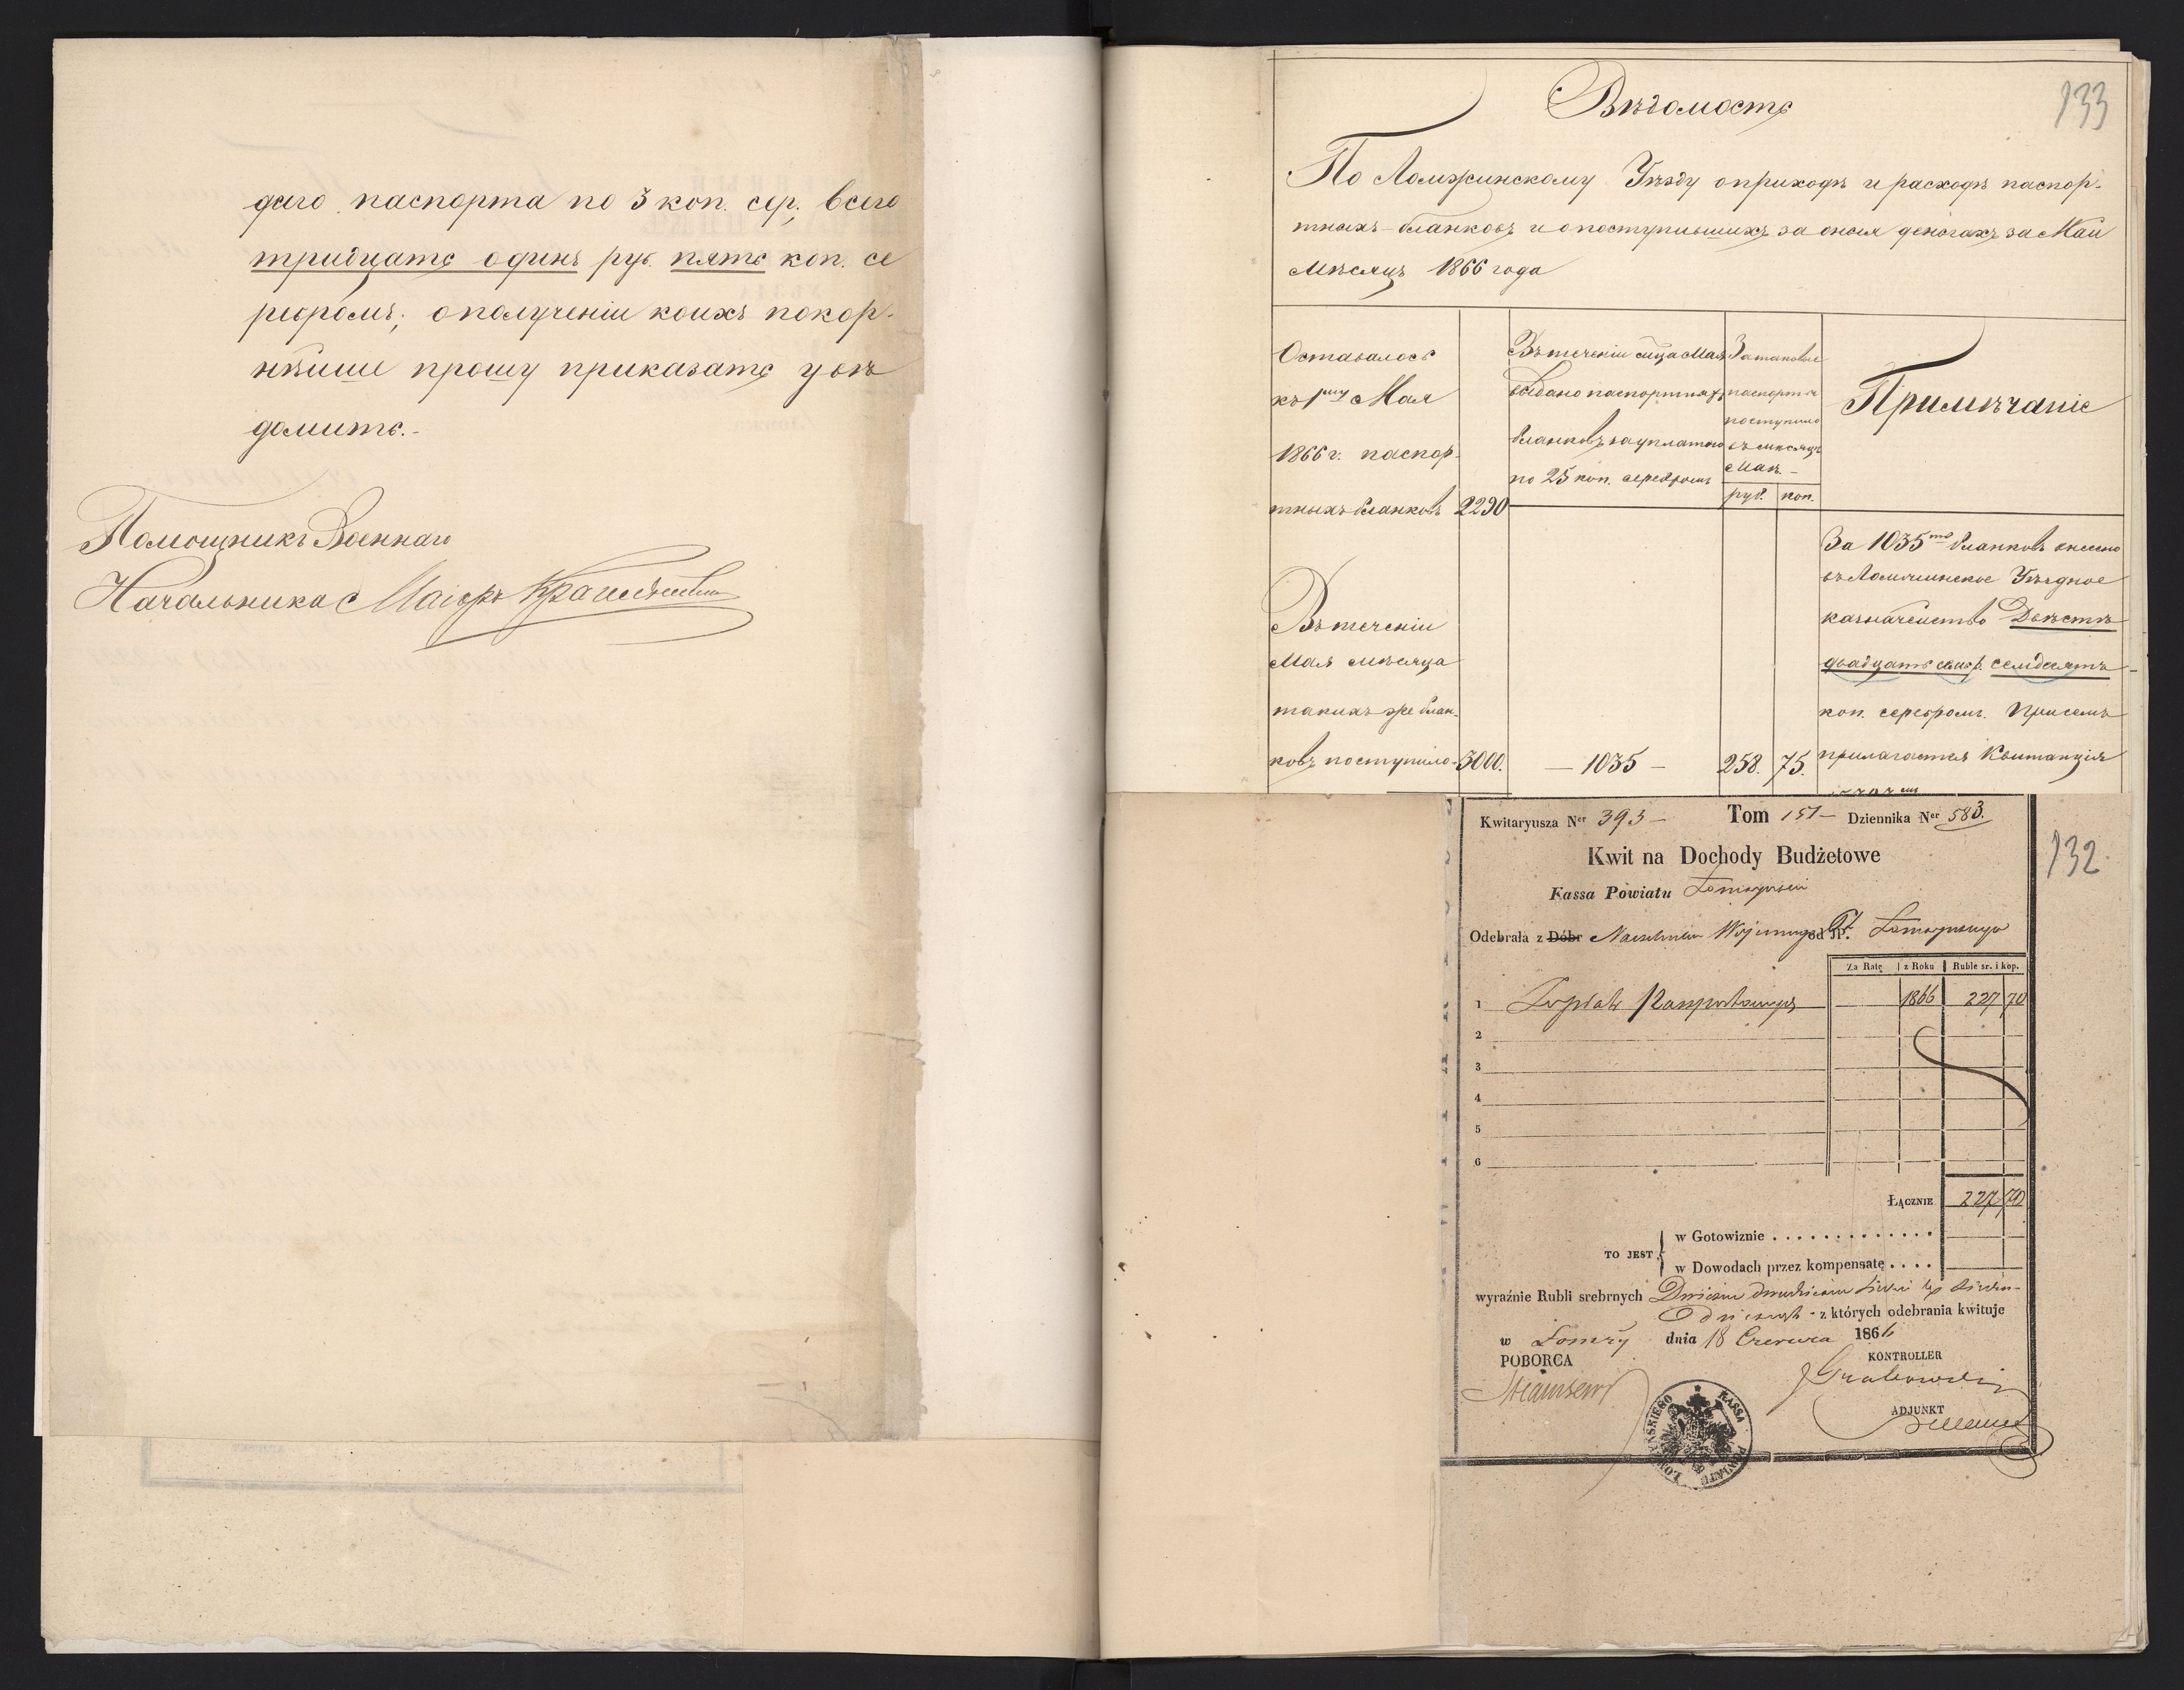 даго паспорта по 3 коп. сер., всего
тридцать одинъ руб. пять коп. се
ребромъ; о полученіи коихъ покор-
нѣйше прошу приказать увѣ
домить.-
Помощникъ Военнаго
Начальника Маіоръ
133
Вѣдомость
По Ломжинскому Уѣзду о приходѣ и расходѣ паспор-
тныхъ-бланковъ и о поступившихъ за оныя деньгахъ за Май
Мѣсяцъ 1866 года
Оставалось
къ 1му Мая
1866 г. паспор-
тныхъ бланковъ 2290
Въ теченіи
Мая мѣсяца
такихъ же блан-
ковъ поступило- 3000.
Въ теченіи м̃ца Мая
выдано паспортныхъ
бланковъ за уплатою
по 25 коп. серебромъ
— 1035 —
За таковые
паспорта
поступило
въ мѣсяцѣ
Маѣ. -
руб. коп.
258. 75.
Примѣчаніе
За 1035 бланковъ внесено
въ Ломжинское Уѣздное
казначейство Двѣсти
двадцать семь р. семдесятъ
коп. серебромъ. При семъ
прилагается Квитанція
Kwitaryusza Ner 393 — Tom 151 — Dziennika Ner 583.
132
Kwit na Dochody Budżetowe
Kassa Powiatu
Odebrała z Dóbr Naczelnika Wojennego od JP. Łomżyńskiego
Za Ratę z Roku Ruble sr. i kop.
1 Paszportowych 1866 227 70
2
3
4
5
6
Łącznie 227 70
TO JEST
w Gotowiznie . . . . . . . . . . . . .
w Dowodach przez kompensatę . . . .
wyraźnie Rubli srebrnych Dwieście dwadzieścia siedm kop siedm-
dziesiąt - z których odebrania kwituje
w Łomży dnia 18 Czerwca 1866
POBORCA
KONTROLLER
Grabowski
ADJUNKT
KASSA POWIATU ŁOMŻYŃSKIEGO